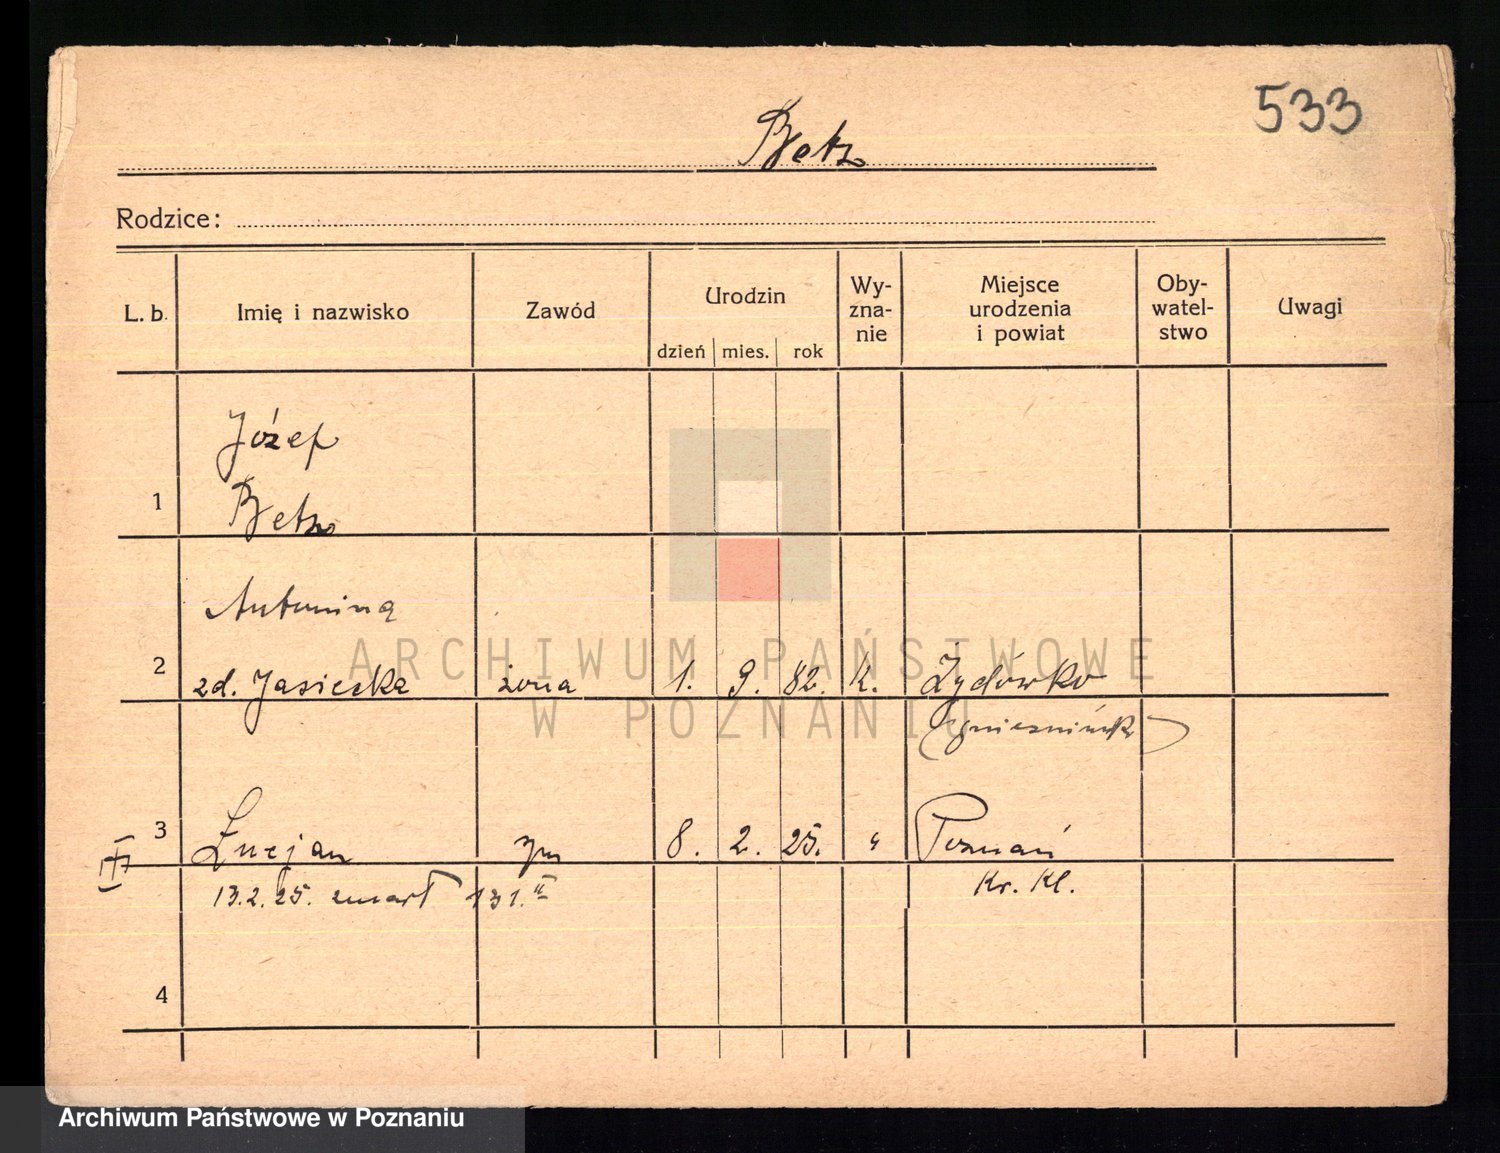 533
Betz
Rodzice:
L. b. Imię i nazwisko Zawód Urodzin dzień mies. rok Wy-zna-nie Miejsce urodzenia i powiat Oby-watel-stwo Uwagi
Józef
1 Betz
Antonina
2 zd. Jasiecka żona 1. 9. 82. K. Żydówko
(gnieźnińsk)
3 Lucjan syn 8. 2. 25. " Poznań
13.2.25. zmarł 131. II Kr. Kl.
4
ARCHIWUM PAŃSTWOWE
W POZNANIU
Archiwum Państwowe w Poznaniu